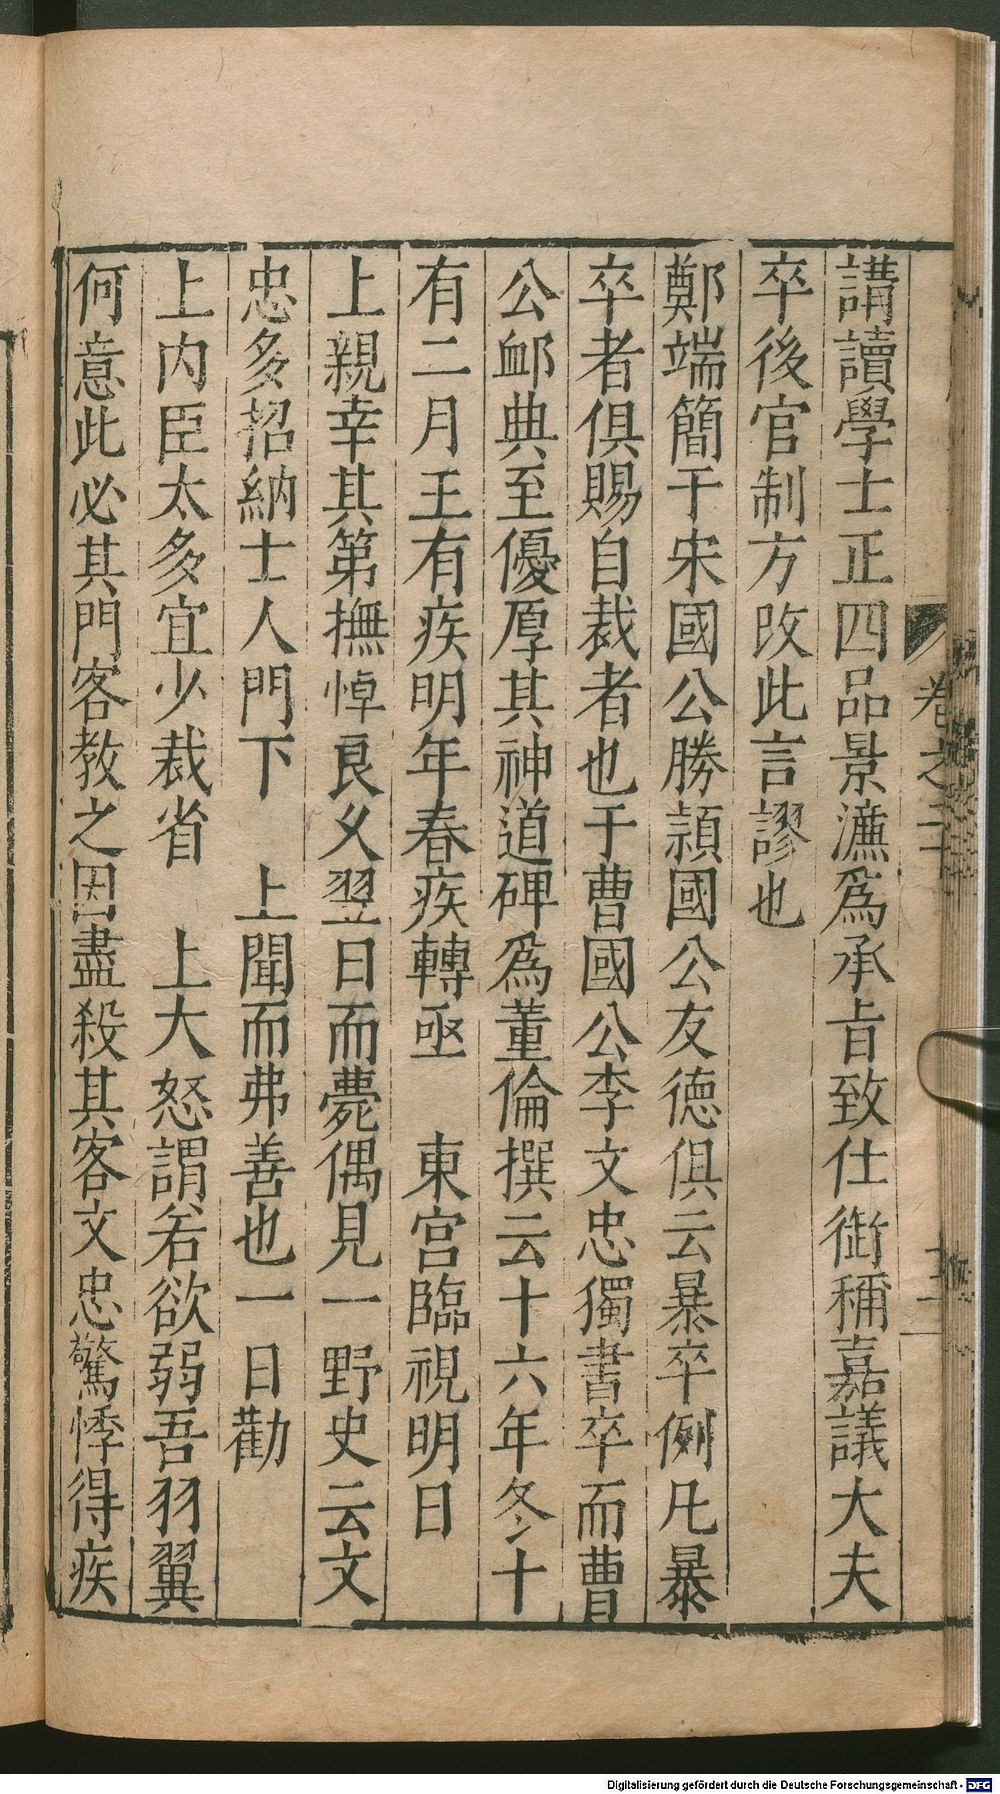 講讀學士正四品景濂爲承㫖致仕銜稱嘉議大夫
卒後官制方改此言謬也
鄭端簡于宋國公勝潁國公友德俱云暴卒例凡暴
卒者俱賜自裁者也于曹國公李文忠獨書卒而曹
公䘏典至優厚其神道碑爲董倫撰云十六年冬十
有二月王有疾明年春疾轉亟　東宮臨視明日
上親幸其第撫悼良乆翌日而薨偶見一野史云文
忠多招納士人門下　上聞而弗善也一日勸
上内臣太多宜少裁省　上大怒謂若欲弱吾羽翼
何意此必其門客教之因盡殺其客文忠驚悸得疾
卷之二十
十二
Digitalisierung gefördert durch die Deutsche Forschungsgemeinschaft - DFG